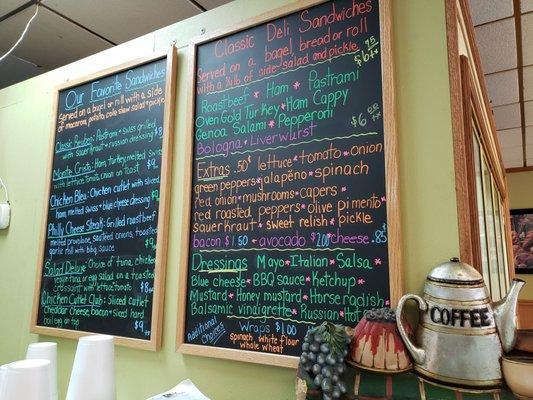 Our Favorite Sandwiches
Served on a bagel or roll with a side
of macaroni, potato, cole slaw salad + pickle
Classic Reuben: Pastrami + swiss grilled
with sauerkraut + russian dressing $8
Monte Cristo: Ham, turkey, melted Swiss
with lettuce + tomato, onion on toast $9
Chicken Swiss: Chicken cutlet with sliced
ham, melted Swiss + blue cheese dressing
Philly Cheese Steak: Grilled roast beef
melted provolone, sauteed onions, toasted
garlic roll with bbq sauce
Salad Deluxe: Choice of tuna, chicken
veggie tuna or egg salad on a toasted
croissant with lettuce + tomato
Chicken Cutlet Club: Sliced cutlet
Cheddar Cheese, bacon w mayo
on roll
Classic Deli Sandwiches
Served on a bagel, bread or roll
with a ¼ lb of side salad and pickle
$6.75
Roastbeef * Ham * Pastrami
Oven Gold Turkey * Ham Cappy
Genoa Salami * Pepperoni
Bologna * Liverwurst
$6.00
Extras .50¢ lettuce * tomato * onion
green peppers * jalapeño * spinach
red onion * mushrooms * capers *
red roasted peppers * olive pimento *
Sauerkraut * sweet relish * pickle
bacon $1.50 * avocado $2.00 * cheese .85
Dressings Mayo * Italian * Salsa *
Blue cheese * BBQ sauce * Ketchup *
Mustard * Honey mustard * Horse radish
Balsamic vinaigrette * Russian * Hot
Additional Choices
Wraps $1.00
Spinach garlic herb
whole wheat
COFFEE